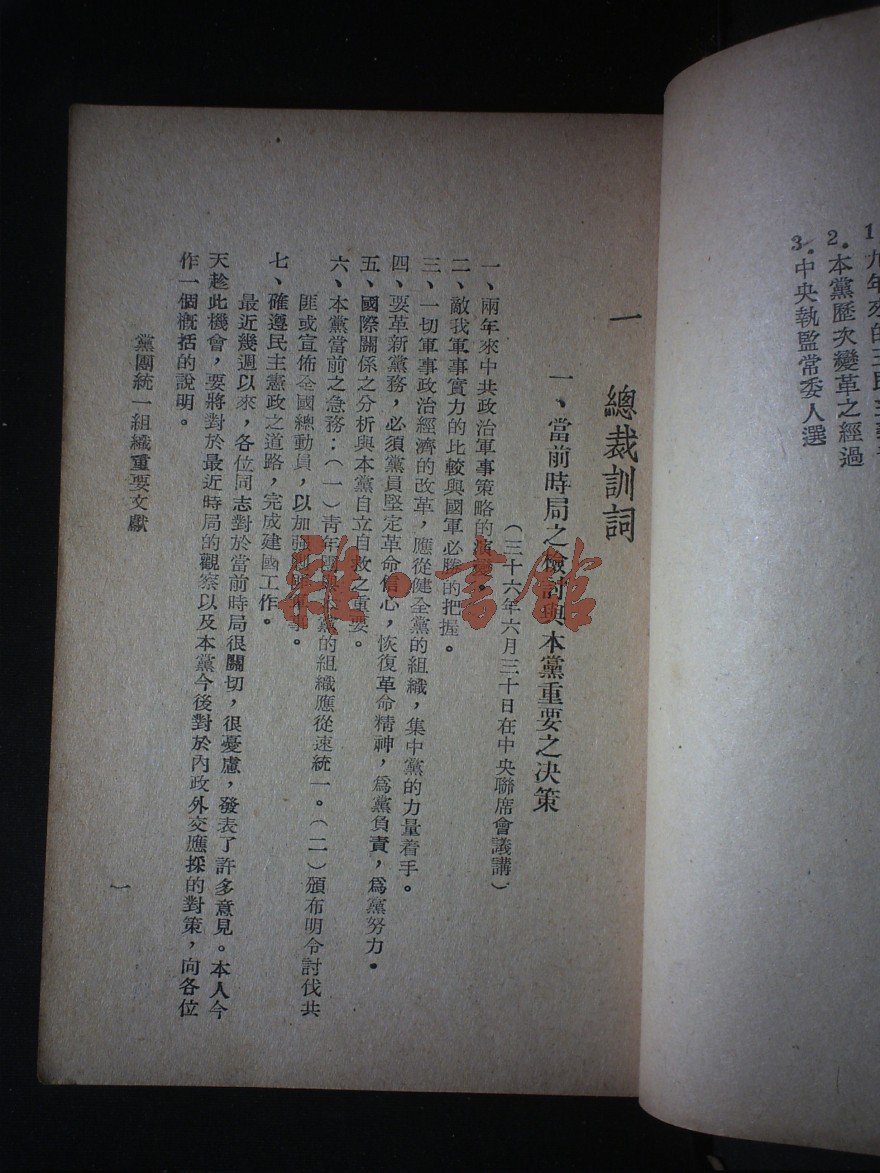 1 九年來的三民主義
2.本黨歷次變革之經過
3.中央執監常委人選
一 總裁訓詞
一、當前時局之檢討與本黨重要之決策
(三十六年六月三十日在中央聯席會議講)
一、兩年來中共政治軍事策略的演變。
二、敵我軍事實力的比較與國軍必勝的把握。
三、一切軍事政治經濟的改革，應從健全黨的組織，集中黨的力量着手。
四、要革新黨務，必須黨員堅定革命信心，恢復革命精神，爲黨負責，爲黨努力。
五、國際關係之分析與本黨自立自救之重要。
六、本黨當前之急務：(一)青年團與本黨的組織應從速統一。(二)頒布明令討伐共
匪或宣佈全國總動員，以加強剿匪軍事。
七、確遵民主憲政之道路，完成建國工作。
最近幾週以來，各位同志對於當前時局很關切，很憂慮，發表了許多意見。本人今
天趁此機會，要將對於最近時局的觀察以及本黨今後對於內政外交應採的對策，向各位
作一個概括的說明。
黨團統一組織重要文獻
一
雜·書館